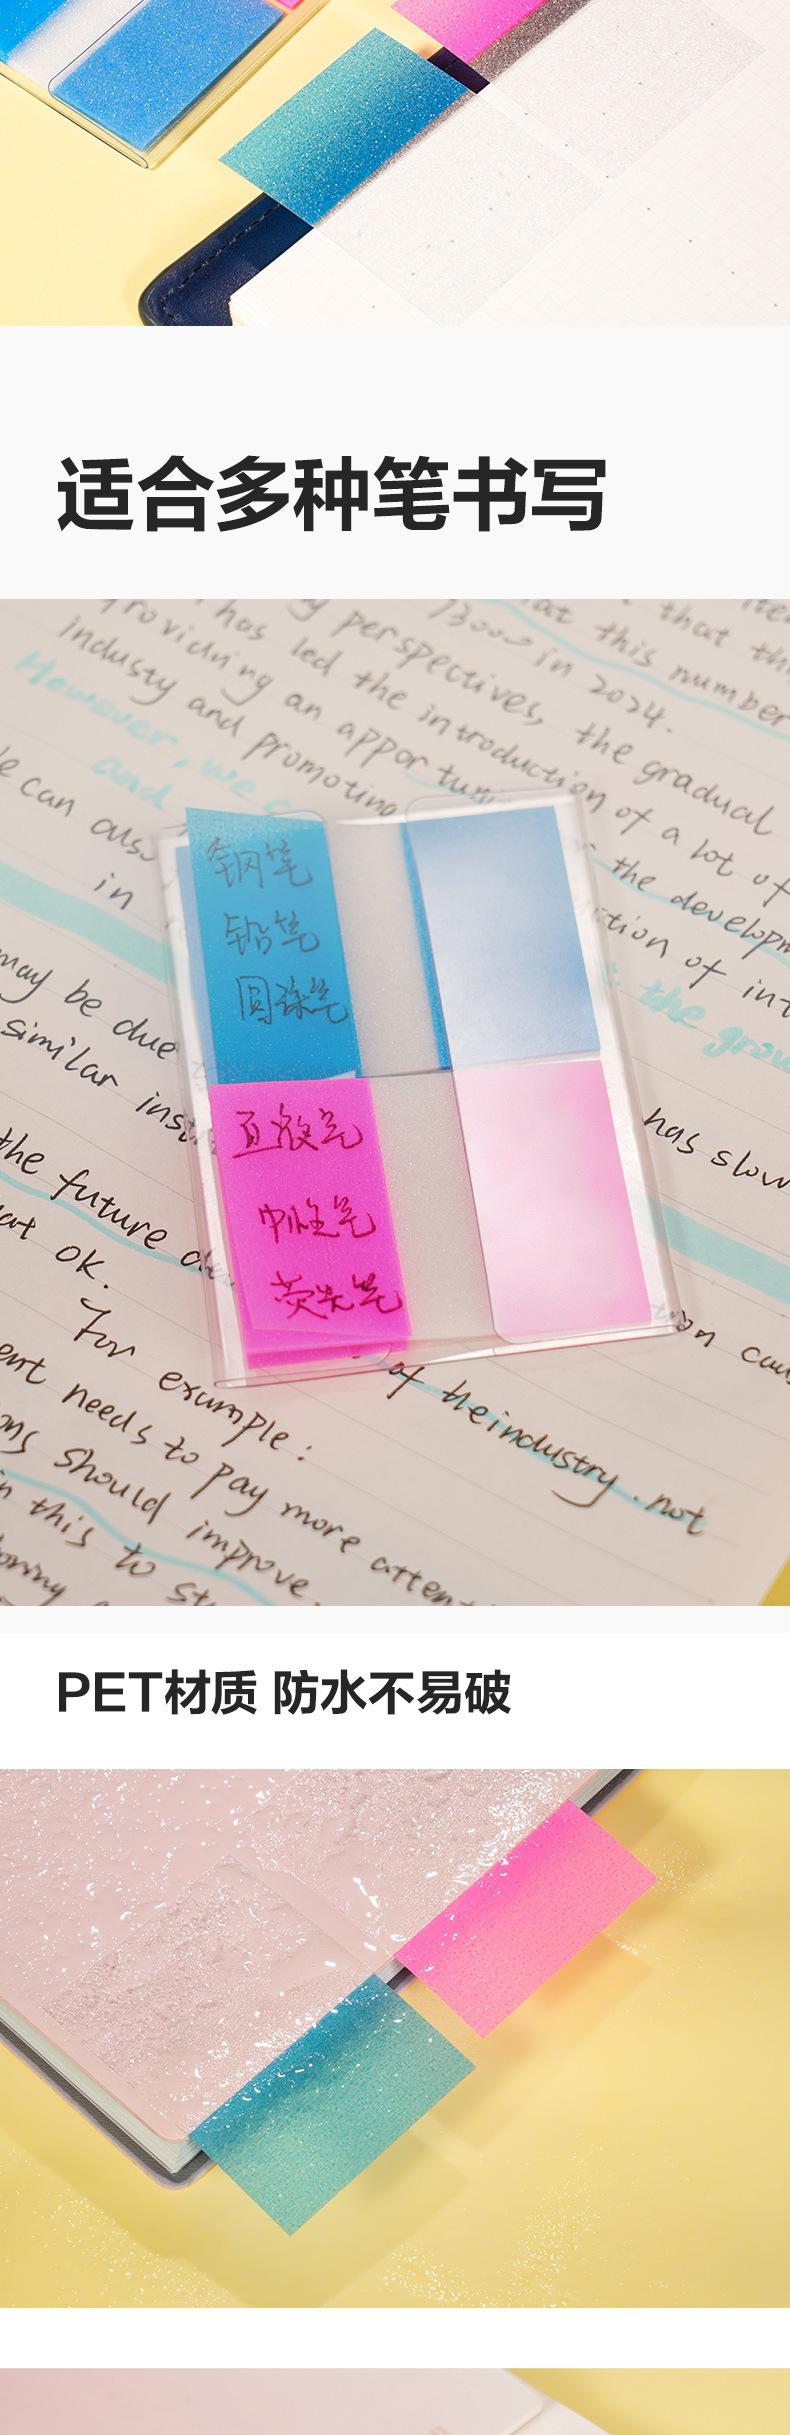 适合多种笔书写
Item
13000 in 2024.
that this number
that thi
providing an appor tuni
has led the introduction of a lot of
perspectives, the gradual
industy and promoting
However, we c
and
e can also
in
the developm
tion of int
the grow
may be due
similar inst
钢笔
铅笔
圆珠笔
直液笔
中性笔
荧光笔
has slow
the future de
at ok.
For example:
ent needs to pay more attent
ons should improve.
in this to st
of the industry. not
PET材质 防水不易破